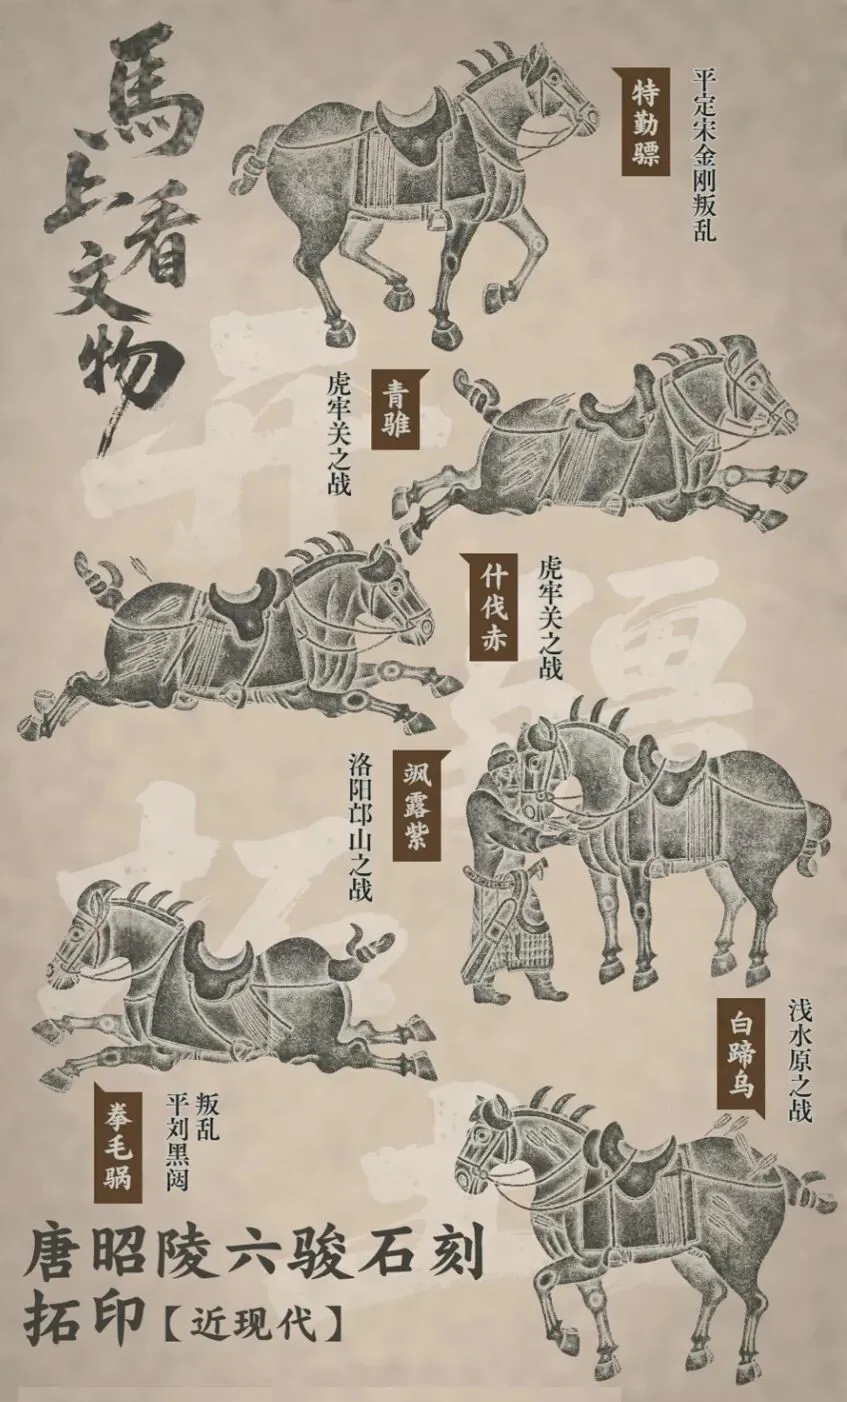 馬上看文物
特勤骠
平定宋金刚叛乱
青骓
虎牢关之战
什伐赤
虎牢关之战
飒露紫
洛阳邙山之战
拳毛䯄
平刘黑闼
叛乱
白蹄乌
浅水原之战
开疆拓土
唐昭陵六骏石刻
拓印【近现代】